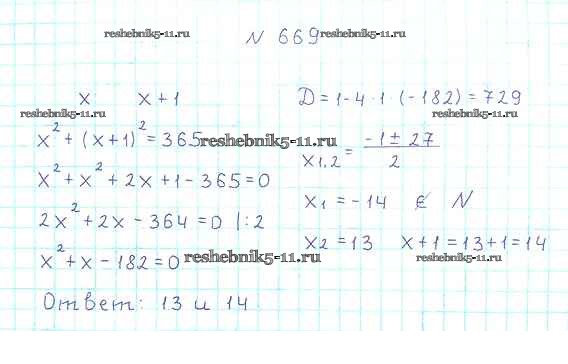 reshebnik5-11.ru
N 669 reshebnik5-11.ru
x x+1
reshebnik5-11.ru
x²+(x+1)²=365 reshebnik5-11.ru
x²+x²+2x+1-365=0
2x²+2x-364=0 |:2
x²+x-182=0 reshebnik5-11.ru
Ответ: 13 и 14
D=1-4·1·(-182)=729
reshebnik5-11.ru
x1,2=
-1±27
2
x1=-14 ∉ N
x2=13 x+1=13+1=14
reshebnik5-11.ru